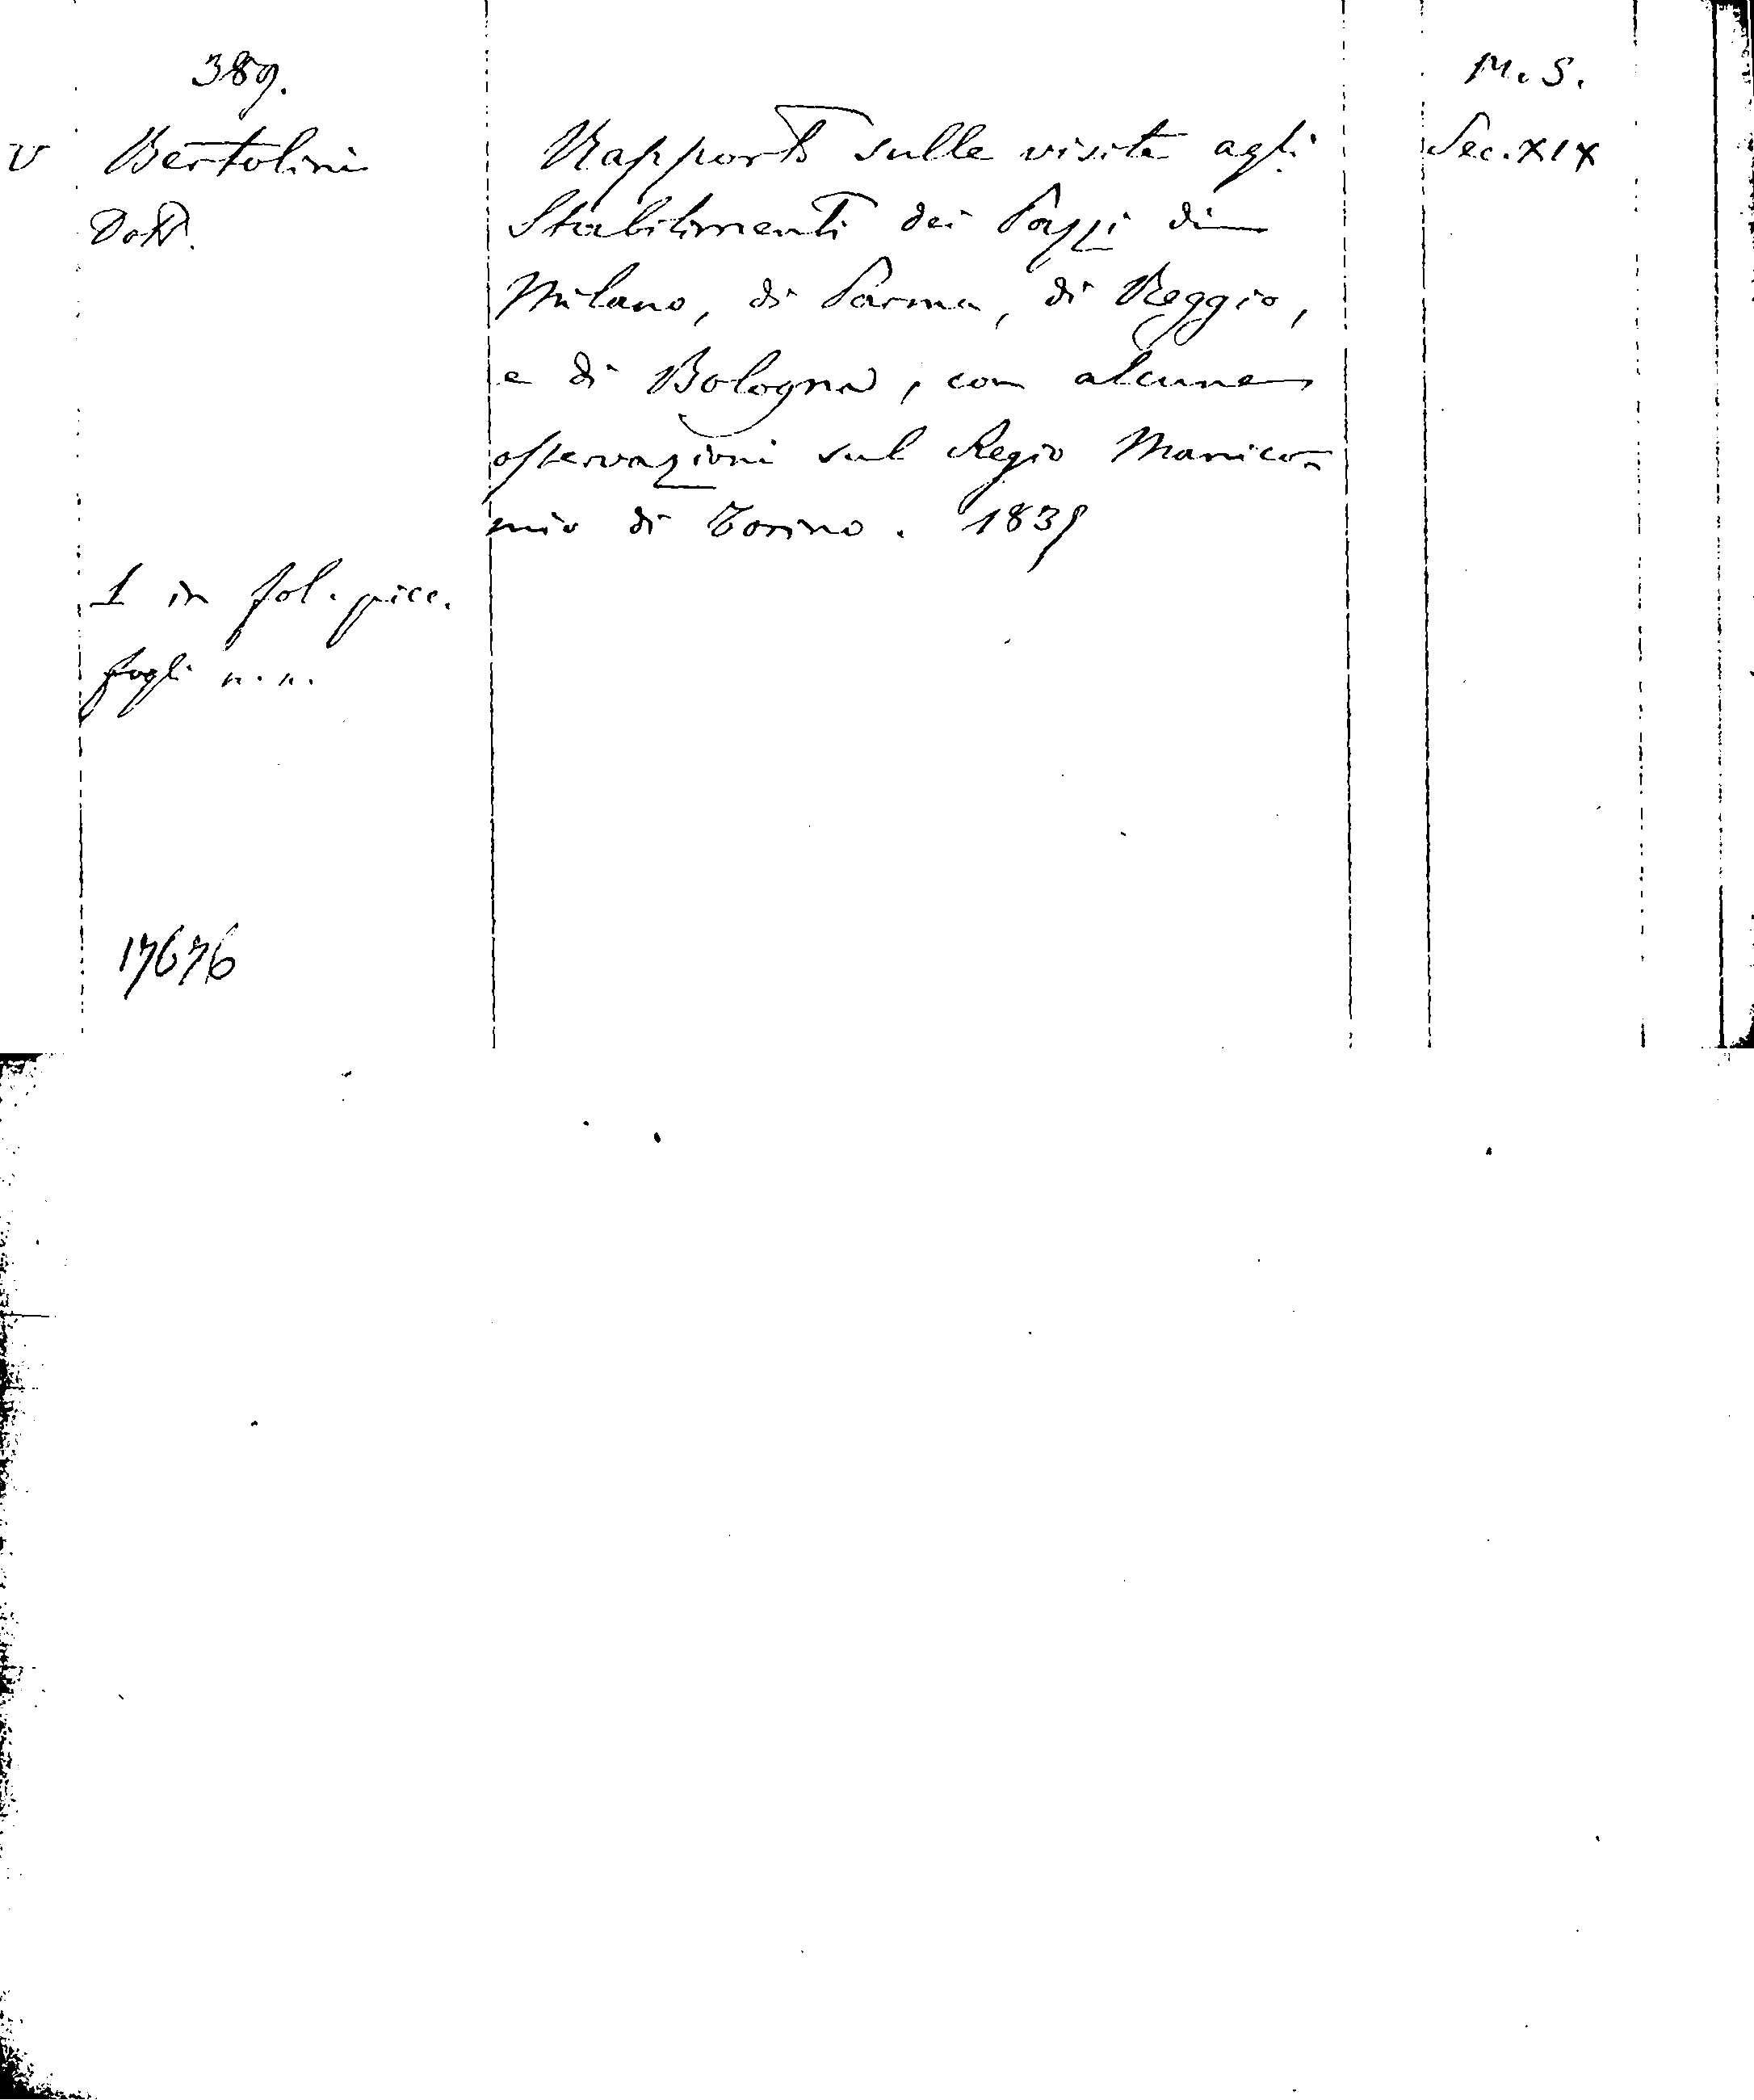 389.
M. S.
V Bertolini
Dott.
Rapporto sulle visite agli
Stabilimenti dei Pazzi di
Milano, di Parma, di Reggio,
e di Bologna, con alcune
osservazioni sul Regio Manico-
mio di Torino.
Sec. XIX
1 in fol. picc.
fogli n. n.
17676